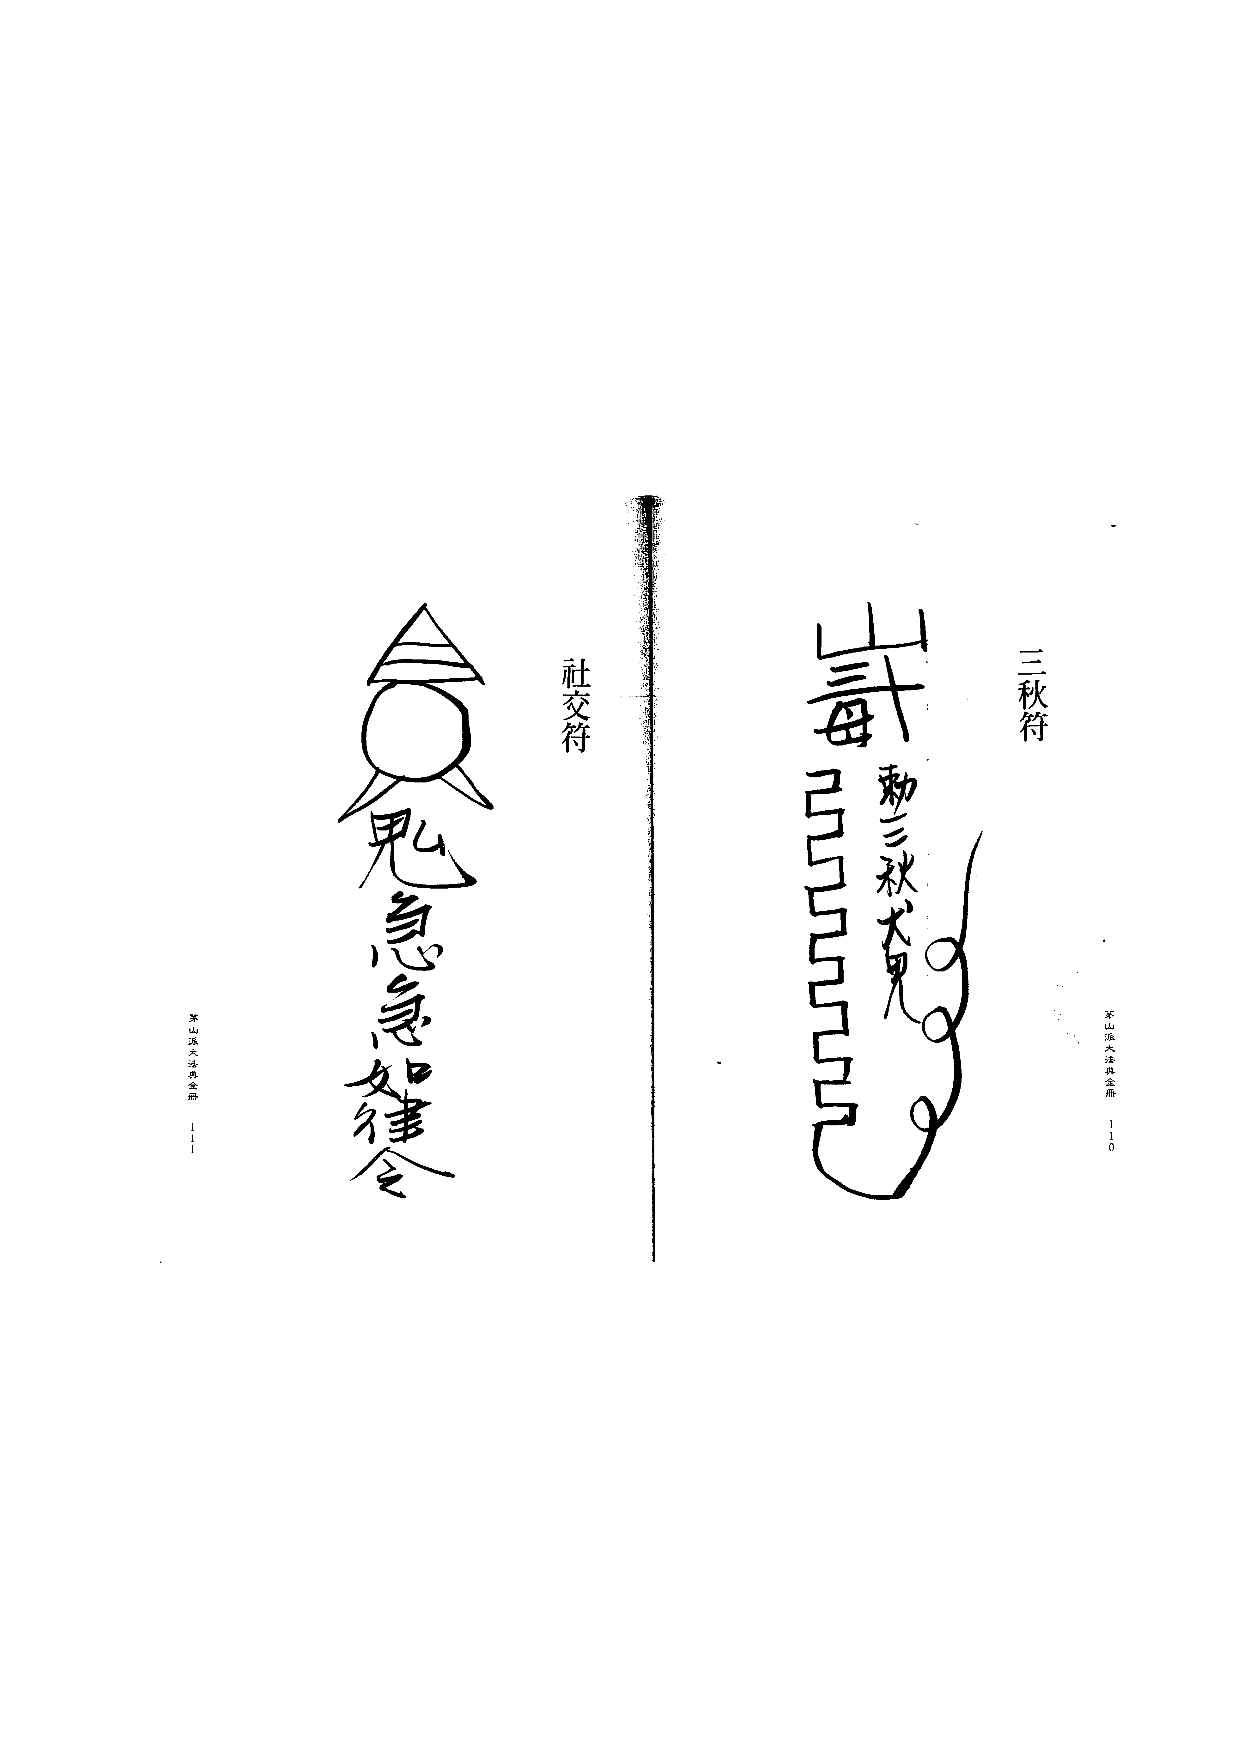 三秋符
勅三秋犬鬼
茅山派大法典全冊 110
社交符
鬼
急急如律令
茅山派大法典全冊 111